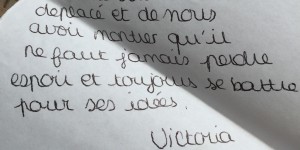 déplacé et de nous
avoir montrer qu'il
ne faut jamais perdre
espoir et toujours se battre
pour ses idées.
Victoria